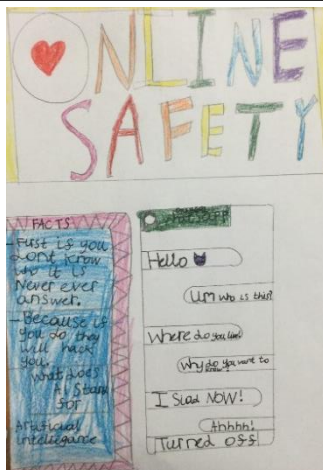 ONLINE
SAFETY
FACTS
-Fust if you
dont know
who it is
Never ever
answer.
-Because if
you do they
will hack
you
what does
AI Stand
for
Artificial
intellegance
Hello 😈
Um who is this?
Where do you live?
Why do you want to
know
I Slad NOW!
Ahhhh!
Turned off